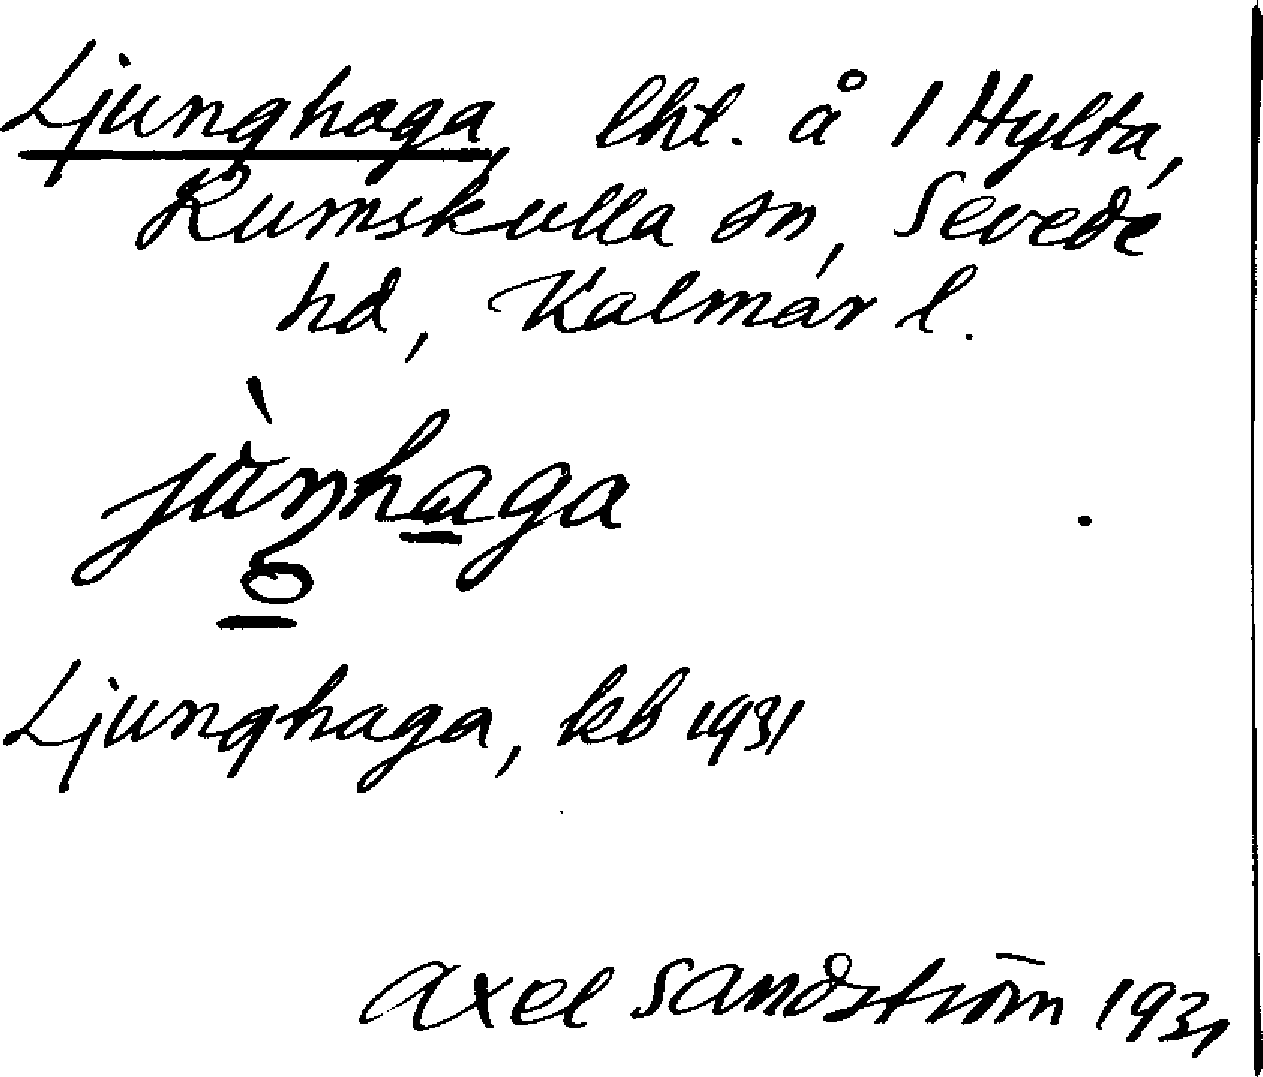 Ljunghaga, lht. å 1 Hylta,
Rumskulla sn, Sevede
hd, Kalmar l.
jùŋhaga
Ljunghaga, kb 1931
Axel Sandström 1931